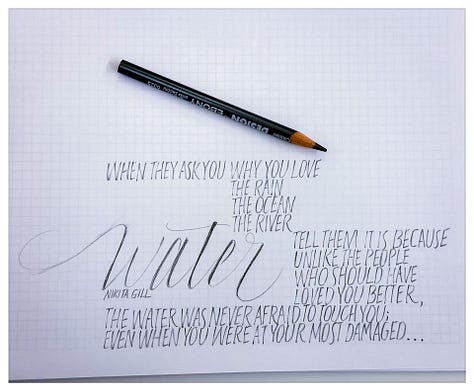 DESIGN EBONY
WHEN THEY ASK YOU WHY YOU LOVE
THE RAIN
THE OCEAN
THE RIVER
water
NIKITA GILL
TELL THEM IT IS BECAUSE
UNLIKE THE PEOPLE
WHO SHOULD HAVE
LOVED YOU BETTER,
THE WATER WAS NEVER AFRAID TO TOUCH YOU;
EVEN WHEN YOU WERE AT YOUR MOST DAMAGED...